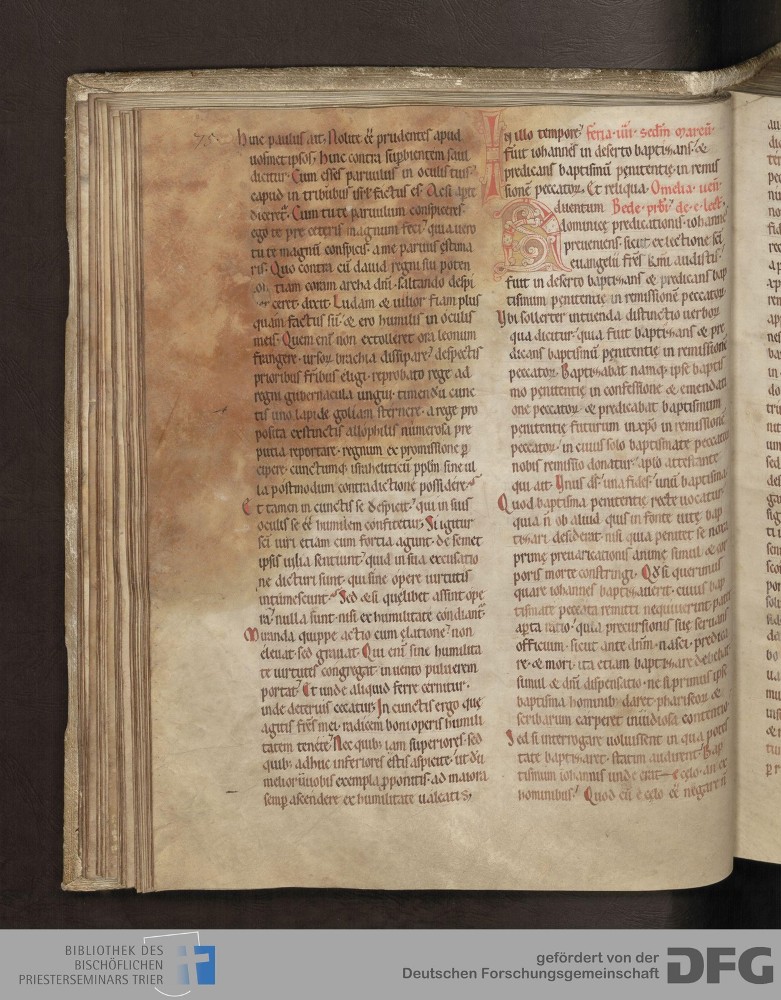 hinc paulus ait. Nolite ee prudentes apud
uosmet ipsos. hinc contra supbientem saul
dicitur. Cum esses paruulus in oculis tuis.
capud in tribubus isrl factus es. Ac si apte
diceret. Cum tu te paruulum conspiceres.
ego te pre ceteris magnum feci. quia uero
tu te magnu conspicis. a me paruus estima
ris. Quo contra cu dauid regni sui poten
tiam coram archa dni saltando despi
ceret. dixit. Ludam & uilior fiam plus
quam factus su. & ero humilis in oculis
meis. Quem eni non extolleret ora leonum
frangere. ursoru brachia dissipare. despectis
prioribus fribus eligi. reprobato rege ad
regni gubernacula ungui. timendu cunc
tis uno lapide goliam sternere. a rege pro
posita exstinctis allophilis numerosa pre
putia reportare. regnum ex promissione p
cipere. cunctumq. israheliticu pplm sine ul
la postmodum contradictione possidere.
Et tamen in cunctis se despicit. qui in suis
oculis se ee humilem confitetur. Si igitur
sci uiri etiam cum fortia agunt. de semet
ipsis uilia sentiunt. quid in sua excusatio
ne dicturi sunt. qui sine opere uirtutis
intumescunt. Sed & si quelibet assint ope
ra. nulla sunt. nisi ex humilitate condiant.
Miranda quippe actio cum elatione. non
eleuat sed grauat. Qui eni sine humilita
te uirtutes congregat. in uento puluerem
portat. Et unde aliquid ferre cernitur.
inde deterius cecatur. In cunctis ergo que
agitis frs mei. radicem boni operis humili
tatem tenete. Nec quib. iam superiores. sed
quib. adhuc inferiores estis aspicite. ut du
melioru uobis exempla pponitis. ad maiora
semp ascendere ex humilitate ualeatis.
In illo tempore. feria. iiii. secdm marcu.
fuit iohannes in deserto baptizans. &
predicans baptismu penitentie. in remis
sione peccatoru. Et reliqua. Omelia. uen.
Aduentum Bede. prbi. de. e. lect.
dominice predicationis. iohanne
preueniens. sicut ex lectione sci
euangelii frs kmi audistis.
fuit in deserto baptizans & predicans bap
tismum penitentie in remissione peccatoru.
Ubi sollerter intuenda distinctio uerboru
qua dicitur. quia fuit baptizans & pre
dicans baptismu penitentie in remissione
peccatoru. Baptizabat namq. ipse baptis
mo penitentie in confessione & emendati
one peccatoru. & predicabat baptismum
penitentie futurum in xpo in remissione
peccatoru. in cuius solo baptismate peccatoru
nobis remissio donatur. aplo attestante
qui ait. Unus ds. una fides. unu baptisma.
Quod baptisma penitentie recte uocatur.
quia n ob aliud quis in fonte uite bap
tizari desiderat. nisi quia penitet se noxa
prime preuaricationis anime simul & cor
poris morte constringi. Qd si querimus
quare iohannes baptizauerit. cuius bap
tismate peccata remitti nequiuerint. patet
apta ratio. quia precursionis sue seruans
officium. sicut ante dnm. nasci. predica
re. & mori. ita etiam baptizare debebat
simul & dni dispensatio. ne si primus ipse
baptisma hominib. daret. phariseoru &
scribarum carperet inuidiosa contentio.
Sed si interrogare uoluissent in qua potes
tate baptizaret. statim audirent. Bap
tismum iohannis unde erat. e celo. an ex
hominibus. Quod cu e celo ee negare n
BIBLIOTHEK DES
BISCHÖFLICHEN
PRIESTERSEMINARS TRIER
gefördert von der
Deutschen Forschungsgemeinschaft
DFG